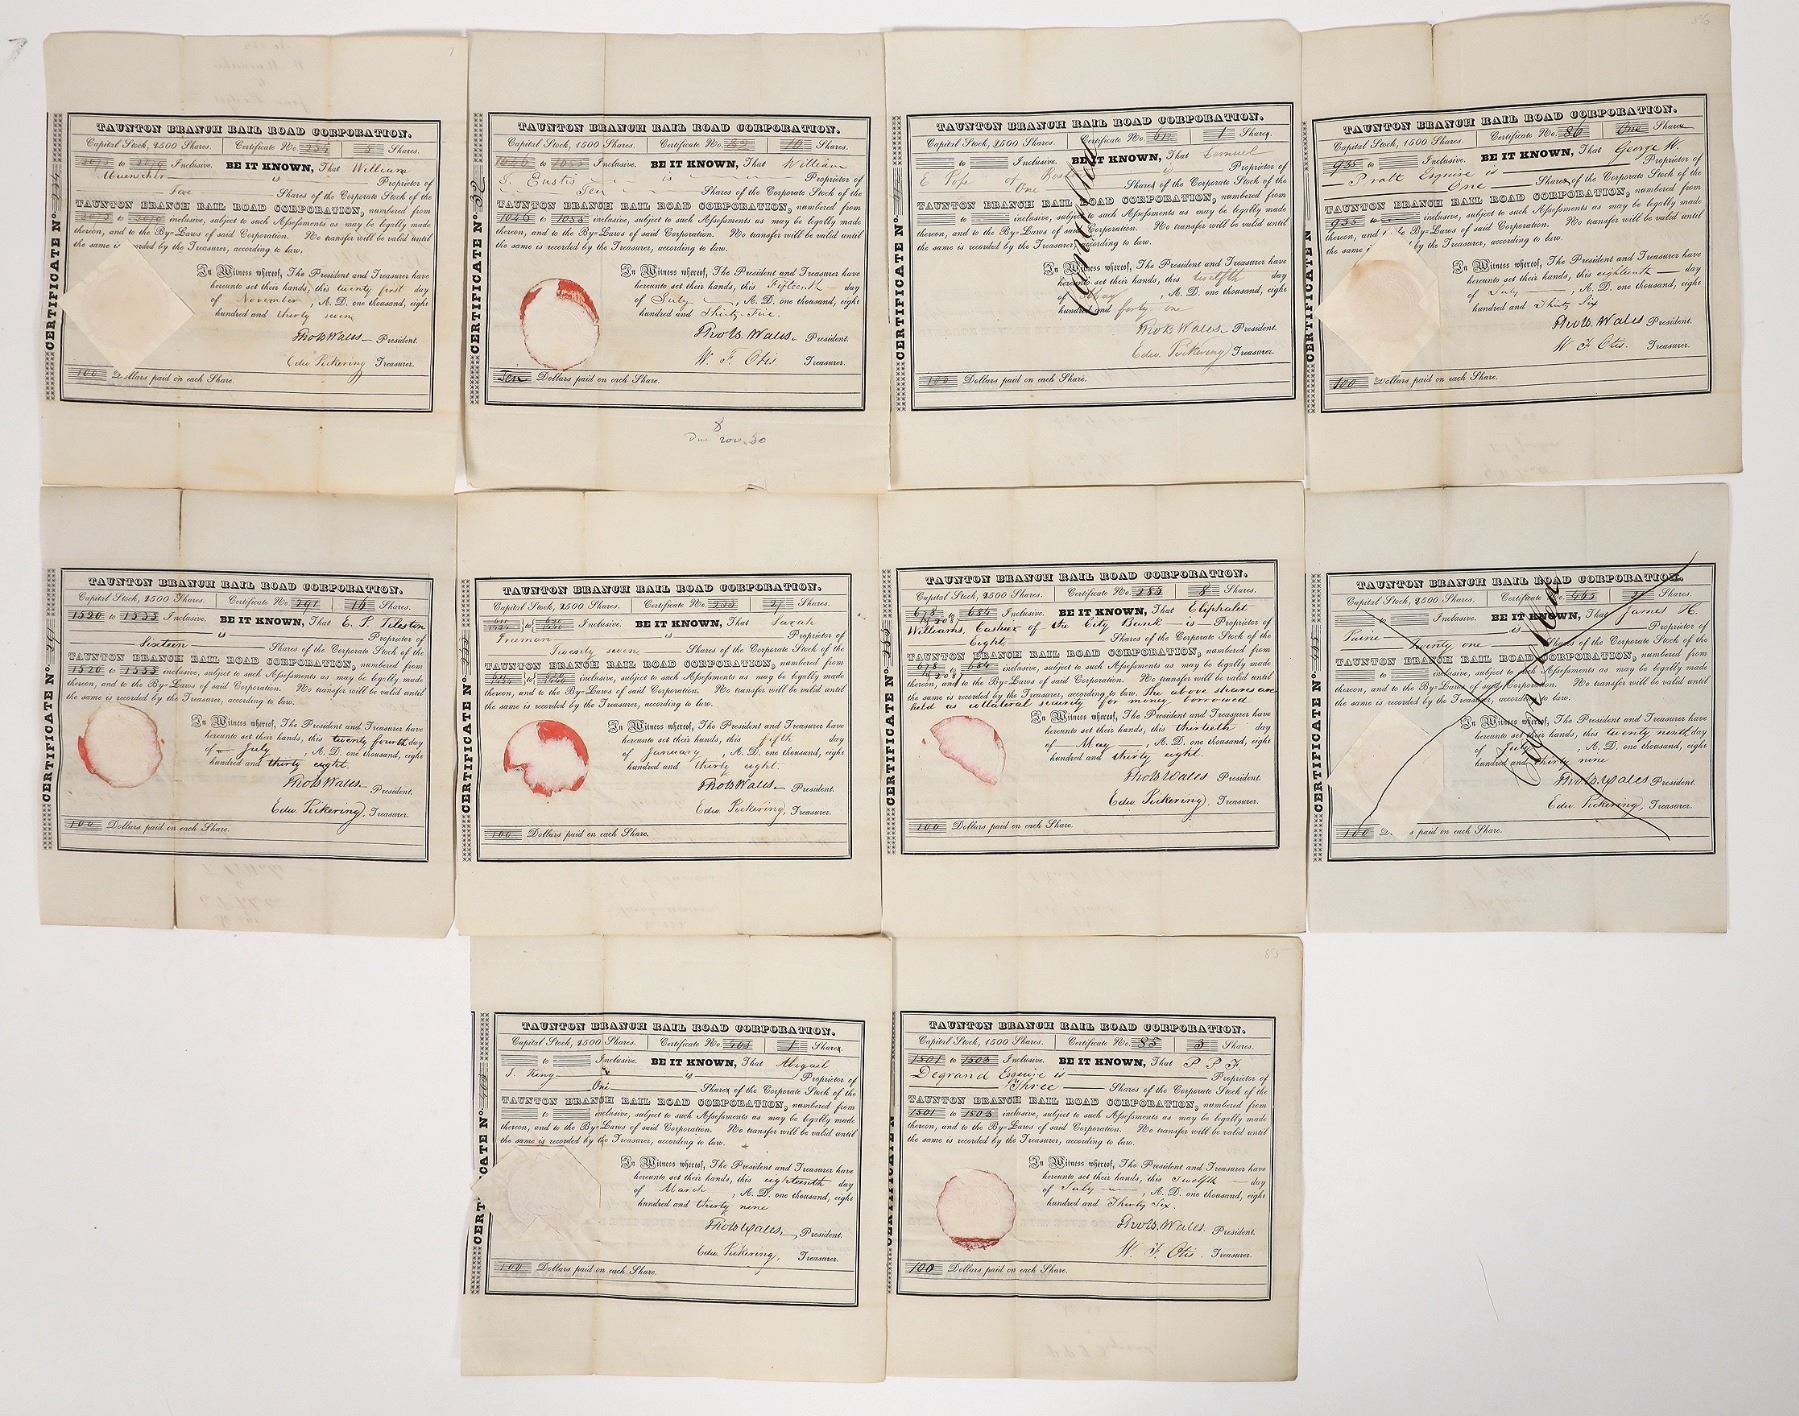 TAUNTON BRANCH RAIL ROAD CORPORATION.
Capital Stock, 2500 Shares. Certificate No. 234 5 Shares.
2015 to 2019 Inclusive. BE IT KNOWN, That William
Muenscher is Proprietor of
Five Shares of the Corporate Stock of the
TAUNTON BRANCH RAIL ROAD CORPORATION, numbered from
2015 to 2019 inclusive, subject to such Assessments as may be legally made
thereon, and to the By-Laws of said Corporation. No transfer will be valid until
the same is recorded by the Treasurer, according to law.
In Witness whereof, The President and Treasurer have
hereunto set their hands, this twenty first day
of November, A. D. one thousand, eight
hundred and thirty seven
Thos B. Wales President.
Edw. Pickering Treasurer.
100 Dollars paid on each Share.
CERTIFICATE No. 234
TAUNTON BRANCH RAIL ROAD CORPORATION.
Capital Stock, 2500 Shares. Certificate No. 32 10 Shares.
1046 to 1055 Inclusive. BE IT KNOWN, That William
T. Eustis is Proprietor of
Ten Shares of the Corporate Stock of the
TAUNTON BRANCH RAIL ROAD CORPORATION, numbered from
1046 to 1055 inclusive, subject to such Assessments as may be legally made
thereon, and to the By-Laws of said Corporation. No transfer will be valid until
the same is recorded by the Treasurer, according to law.
In Witness whereof, The President and Treasurer have
hereunto set their hands, this Fifteenth day
of July, A. D. one thousand, eight
hundred and Thirty-Five.
Thos B. Wales President.
W. F. Otis Treasurer.
Ten Dollars paid on each Share.
CERTIFICATE No. 32
8
Due Nov. 30
TAUNTON BRANCH RAIL ROAD CORPORATION.
Capital Stock, 2500 Shares. Certificate No. 1 Share
to Inclusive. BE IT KNOWN, That Samuel
E of Boston is Proprietor of
One Share of the Corporate Stock of the
TAUNTON BRANCH RAIL ROAD CORPORATION, numbered from
to inclusive, subject to such Assessments as may be legally made
thereon, and to the By-Laws of said Corporation. No transfer will be valid until
the same is recorded by the Treasurer, according to law.
In Witness whereof, The President and Treasurer have
hereunto set their hands, this twelfth day
of May, A. D. one thousand, eight
hundred and forty one
Thos B Wales President.
Edw. Pickering Treasurer.
100 Dollars paid on each Share.
CERTIFICATE No.
Cancelled
86
TAUNTON BRANCH RAIL ROAD CORPORATION.
Capital Stock, 2500 Shares. Certificate No. 86 One Share
935 to Inclusive. BE IT KNOWN, That George W.
Pratt Esquire is Proprietor of
One Share of the Corporate Stock of the
TAUNTON BRANCH RAIL ROAD CORPORATION, numbered from
935 to inclusive, subject to such Assessments as may be legally made
thereon, and to the By-Laws of said Corporation. No transfer will be valid until
the same by the Treasurer, according to law.
In Witness whereof, The President and Treasurer have
hereunto set their hands, this eighteenth day
of July, A. D. one thousand, eight
hundred and Thirty Six
Thos B. Wales President.
W. F. Otis. Treasurer.
100 Dollars paid on each Share.
CERTIFICATE N
TAUNTON BRANCH RAIL ROAD CORPORATION.
Capital Stock, 2500 Shares. Certificate No. 291 16 Shares.
1520 to 1535 Inclusive. BE IT KNOWN, That E. P. Tileston
is Proprietor of
Sixteen Shares of the Corporate Stock of the
TAUNTON BRANCH RAIL ROAD CORPORATION, numbered from
1520 to 1535 inclusive, subject to such Assessments as may be legally made
thereon, and to the By-Laws of said Corporation. No transfer will be valid until
the same is recorded by the Treasurer, according to law.
In Witness whereof, The President and Treasurer have
hereunto set their hands, this twenty fourth day
of July, A. D. one thousand, eight
hundred and thirty eight.
Thos B Wales President.
Edw. Pickering, Treasurer.
100 Dollars paid on each Share.
CERTIFICATE No. 291
TAUNTON BRANCH RAIL ROAD CORPORATION.
Capital Stock, 2500 Shares. Certificate No. 27 Shares.
to Inclusive. BE IT KNOWN, That Sarah
Freeman is Proprietor of
Twenty seven Shares of the Corporate Stock of the
TAUNTON BRANCH RAIL ROAD CORPORATION, numbered from
to inclusive, subject to such Assessments as may be legally made
thereon, and to the By-Laws of said Corporation. No transfer will be valid until
the same is recorded by the Treasurer, according to law.
In Witness whereof, The President and Treasurer have
hereunto set their hands, this fifth day
of January, A. D. one thousand, eight
hundred and thirty eight.
Thos B. Wales President.
Edw. Pickering, Treasurer.
100 Dollars paid on each Share.
CERTIFICATE No.
TAUNTON BRANCH RAIL ROAD CORPORATION.
Capital Stock, 2500 Shares. Certificate No. 285 8 Shares.
678 to 684 Inclusive. BE IT KNOWN, That Eliphalet
Williams, Cashier of the City Bank is Proprietor of
Eight Shares of the Corporate Stock of the
TAUNTON BRANCH RAIL ROAD CORPORATION, numbered from
678 to 684 inclusive, subject to such Assessments as may be legally made
thereon, and to the By-Laws of said Corporation. No transfer will be valid until
the same is recorded by the Treasurer, according to law. The above shares are
held as collateral security for money borrowed
In Witness whereof, The President and Treasurer have
hereunto set their hands, this thirtieth day
of May, A. D. one thousand, eight
hundred and thirty eight.
Thos B Wales President.
Edw. Pickering, Treasurer.
100 Dollars paid on each Share.
CERTIFICATE No. 285
TAUNTON BRANCH RAIL ROAD CORPORATION.
Capital Stock, 2500 Shares. Certificate No. 21 Shares.
to Inclusive. BE IT KNOWN, That James H.
Paine is Proprietor of
twenty one Shares of the Corporate Stock of the
TAUNTON BRANCH RAIL ROAD CORPORATION, numbered from
to inclusive, subject to such Assessments as may be legally made
thereon, and to the By-Laws of said Corporation. No transfer will be valid until
the same is recorded by the Treasurer, according to law.
In Witness whereof, The President and Treasurer have
hereunto set their hands, this twenty ninth day
of July, A. D. one thousand, eight
hundred and thirty nine
Thos B Wales President.
Edw. Pickering, Treasurer.
100 D s paid on each Share.
CERTIFICATE No.
Cancelled
TAUNTON BRANCH RAIL ROAD CORPORATION.
Capital Stock, 2500 Shares. Certificate No. 404 1 Share
to Inclusive. BE IT KNOWN, That Abigail
S. King is Proprietor of
One Share of the Corporate Stock of the
TAUNTON BRANCH RAIL ROAD CORPORATION, numbered from
to inclusive, subject to such Assessments as may be legally made
thereon, and to the By-Laws of said Corporation. No transfer will be valid until
the same is recorded by the Treasurer, according to law.
In Witness whereof, The President and Treasurer have
hereunto set their hands, this eighteenth day
of March, A. D. one thousand, eight
hundred and thirty nine
Thos B Wales, President.
Edw. Pickering, Treasurer.
100 Dollars paid on each Share.
CERT CATE No.
85
TAUNTON BRANCH RAIL ROAD CORPORATION.
Capital Stock, 2500 Shares. Certificate No. 85 3 Shares.
1501 to 1503 Inclusive. BE IT KNOWN, That P P F
Degrand Esquire is Proprietor of
Three Shares of the Corporate Stock of the
TAUNTON BRANCH RAIL ROAD CORPORATION, numbered from
1501 to 1503 inclusive, subject to such Assessments as may be legally made
thereon, and to the By-Laws of said Corporation. No transfer will be valid until
the same is recorded by the Treasurer, according to law.
In Witness whereof, The President and Treasurer have
hereunto set their hands, this Twelfth day
of July, A. D. one thousand, eight
hundred and Thirty Six.
Thos B. Wales. President.
W. F. Otis Treasurer.
100 Dollars paid on each Share.
CERTIFICATE N